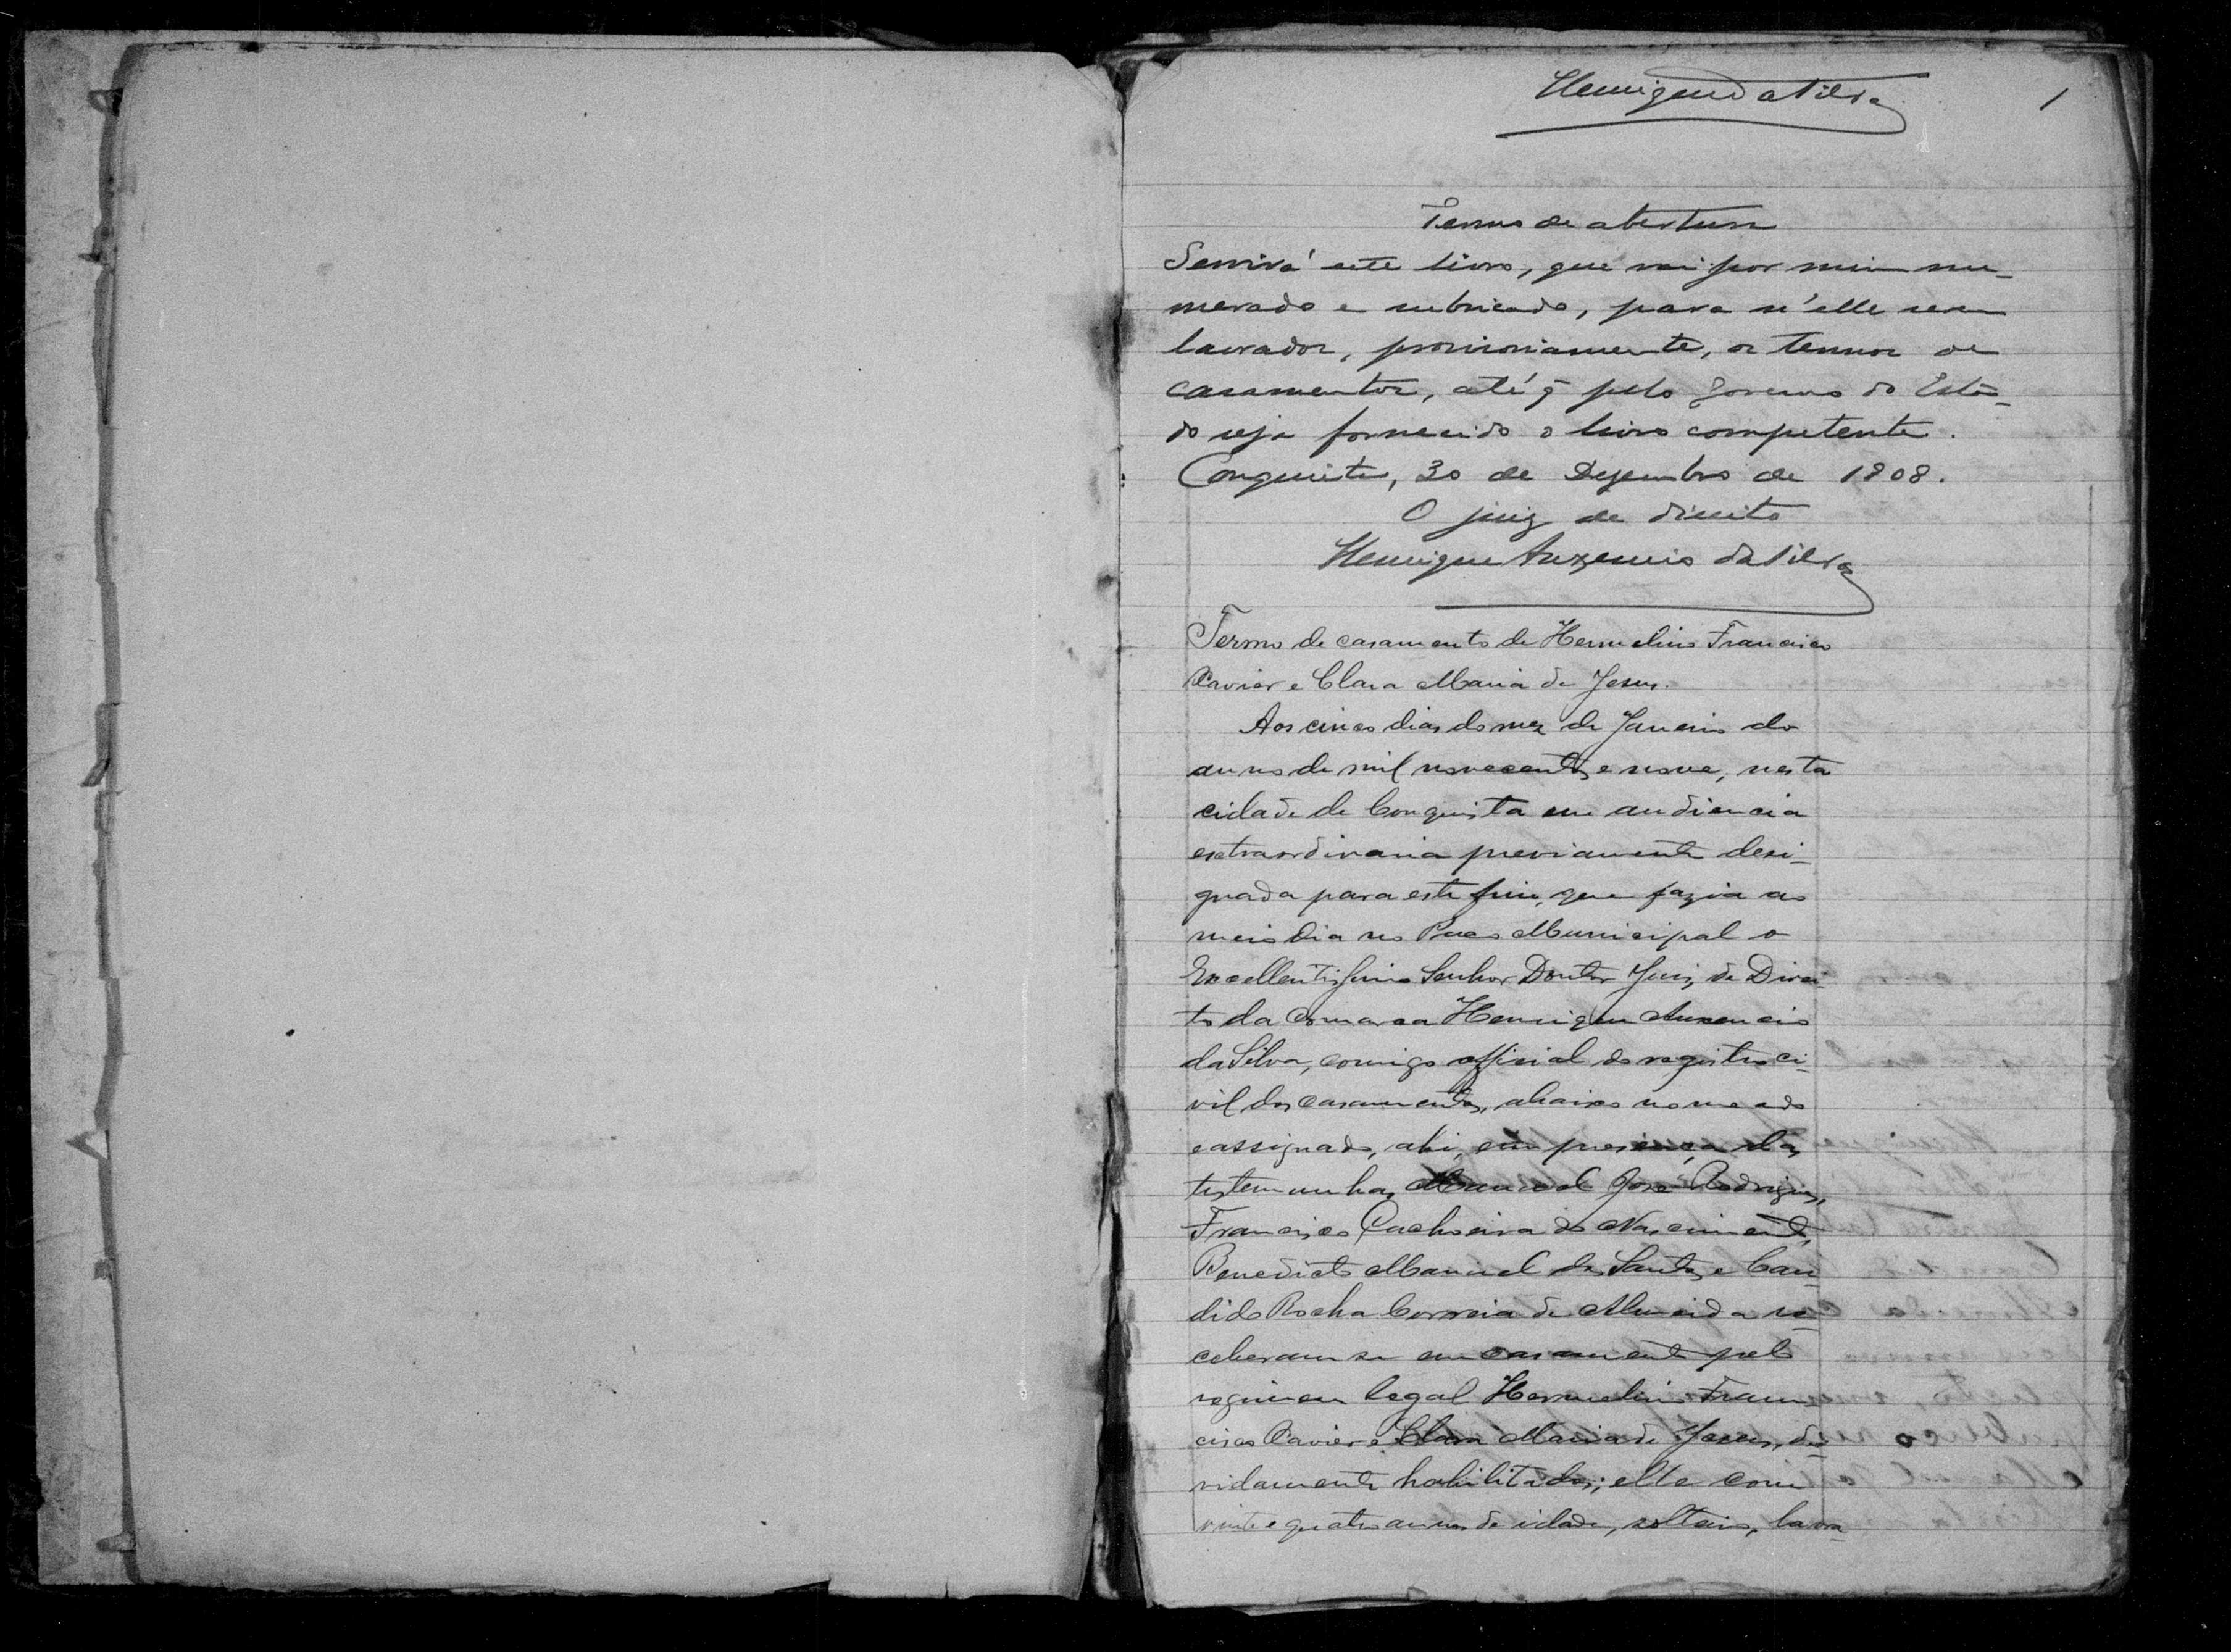 Henrique da Silva
1
Termo de abertura
Servirá este livro, que vai por mim nu-
merado e rubricado, para n'elle serem
lavrados, provisoriamente, os termos de
casamentos, até q̃ pelo Governo do Esta-
do seja fornecido o livro competente.
Conquista, 30 de Dezembro de 1908.
O juiz de direito
Henrique Auxencio da Silva
Termo de casamento de Hermelino Francisco
Xavier e Clara Maria de Jesus.
Aos cinco dias do mez de Janeiro do
anno de mil novecentos e nove, nesta
cidade de Conquista em audiencia
extraordinaria previamente desi-
gnada para este fim, que fazia ao
meio dia no Paço Municipal o
Excellentissimo Senhor Doutor Juiz de Direi-
to da Comarca Henrique Auxencio
da Silva, comigo official do registro ci-
vil dos casamentos, abaixo nomeado
e assignado, ahi, em presença das
testemunhas Manoel José Rodrigues,
Francisco Cachoeira do Nascimento,
Benedicto Manoel dos Santos e Can-
dido Rocha Correia de Almeida re-
ceberam se em casamento pelo
regimen legal Hermelino Fran-
cisco Xavier e Clara Maria de Jesus, de-
vidamente habilitados; elle com
vinte e quatro annos de idade, solteiro, lavra-